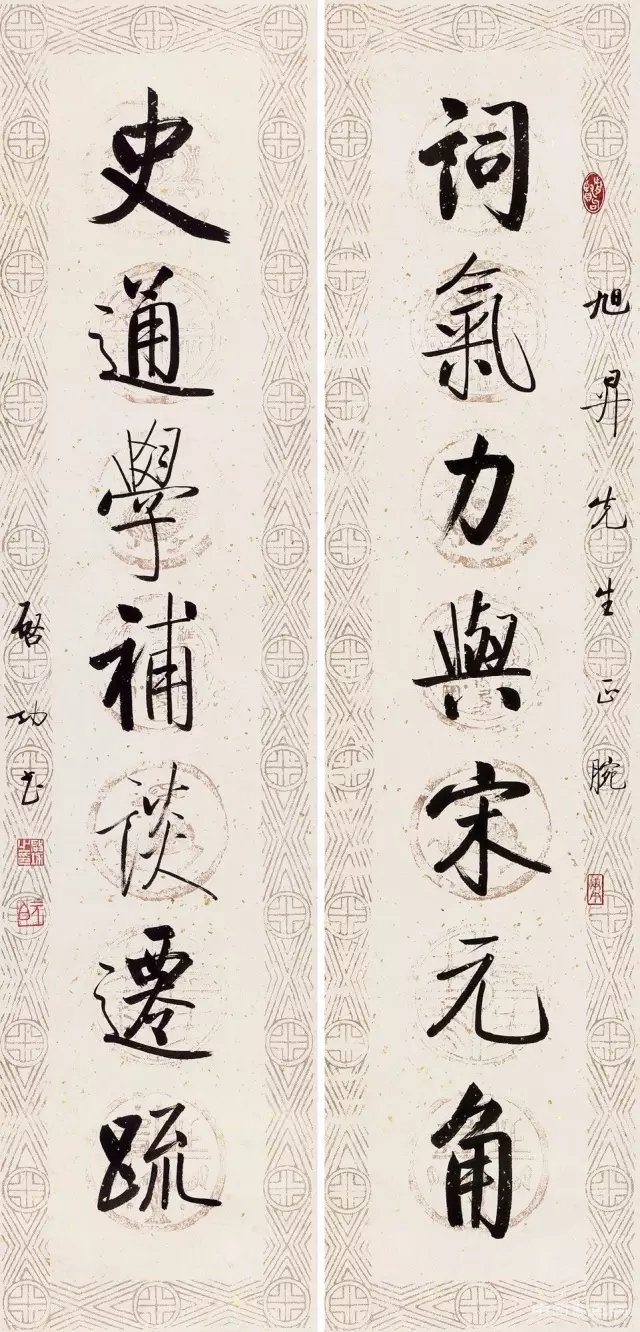 旭昇先生正腕
詞氣力與宋元角
史通學補談遷疏
啓功書